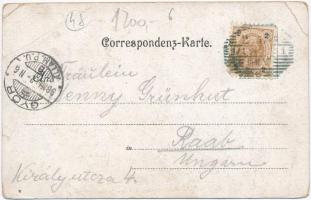 (48) 1200-6
Correspondenz-Karte.
An
Fräulein
Jenny Grünhut
Raab
Ungarn
Király utcza 4.
GYŐR
2
1